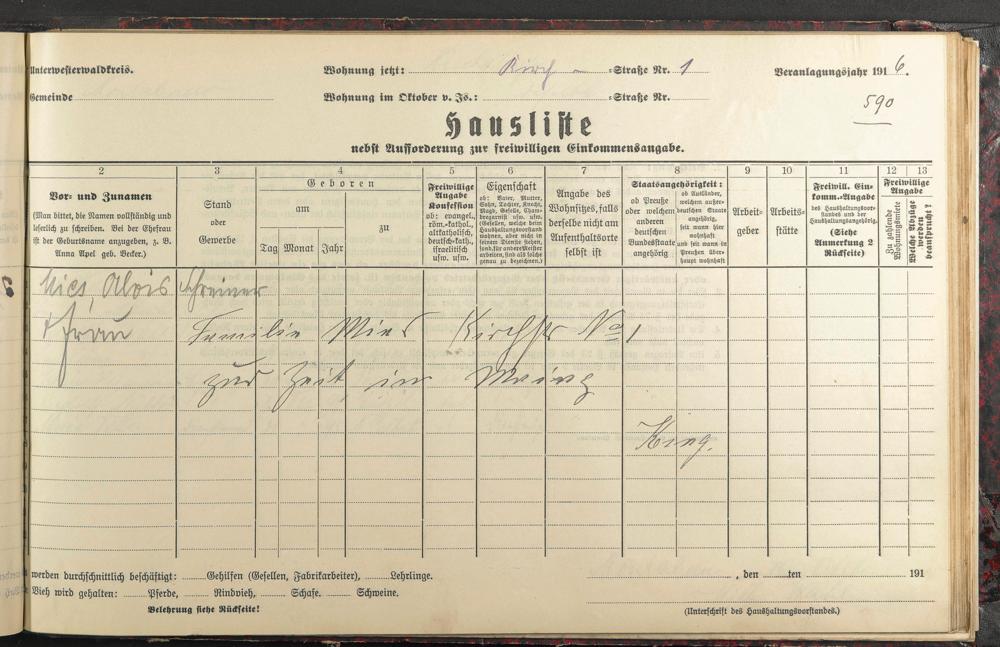 Unterwesterwaldkreis.
Wohnung jetzt: Kirch- =Straße Nr. 1
Veranlagungsjahr 1916.
Gemeinde
Wohnung im Oktober v. Js.: =Straße Nr.
590
Hausliste
nebst Aufforderung zur freiwilligen Einkommensangabe.
2
3
4
5
6
7
8
9
10
11
12
13
Vor- und Zunamen
(Man bittet, die Namen vollständig und
leserlich zu schreiben. Bei der Ehefrau
ist der Geburtsname anzugeben, z. B.
Anna Apel geb. Becker.)
Stand
oder
Gewerbe
Geboren
am
zu
Tag Monat Jahr
Freiwillige
Angabe
Konfession
ob: evangel.,
röm.=kathol.,
altkatholisch,
deutsch=kath.,
israelitisch
usw. usw.
Eigenschaft
ob: Vater, Mutter,
Sohn, Tochter, Knecht,
Magd, Geselle, Cham-
bregarnist usw. usw.
(Gesellen, welche beim
Haushaltungsvorstand
wohnen, aber nicht in
seinem Dienste stehen,
sond. für andere Meister
arbeiten, sind als solche
genau zu bezeichnen.)
Angabe des
Wohnsitzes, falls
derselbe nicht am
Aufenthaltsorte
selbst ist
Staatsangehörigkeit:
ob Preuße
oder welchem
anderen
deutschen
Bundesstaate
angehörig
ob Ausländer,
welchem außer-
deutschen Staate
angehörig,
seit wann hier
wohnhaft
und seit wann in
Preußen über-
haupt wohnhaft
Arbeit=
geber
Arbeits=
stätte
Freiwill. Ein-
komm.=Angabe
des Haushaltungsvor-
standes und der
Haushaltungsangehörig.
(Siehe
Anmerkung 2
Rückseite)
Freiwillige
Angabe
Zu zahlende
Wohnungsmiete
Welche Abzüge
werden
beansprucht?
Mies, Alois Schreiner
+ Frau Familie Mies Kirchstr No 1
zur Zeit in Mainz
King.
werden durchschnittlich beschäftigt: Gehilfen (Gesellen, Fabrikarbeiter), Lehrlinge.
, den ten 191
Vieh wird gehalten: Pferde, Rindvieh, Schafe. Schweine.
Belehrung siehe Rückseite!
(Unterschrift des Haushaltungsvorstandes.)